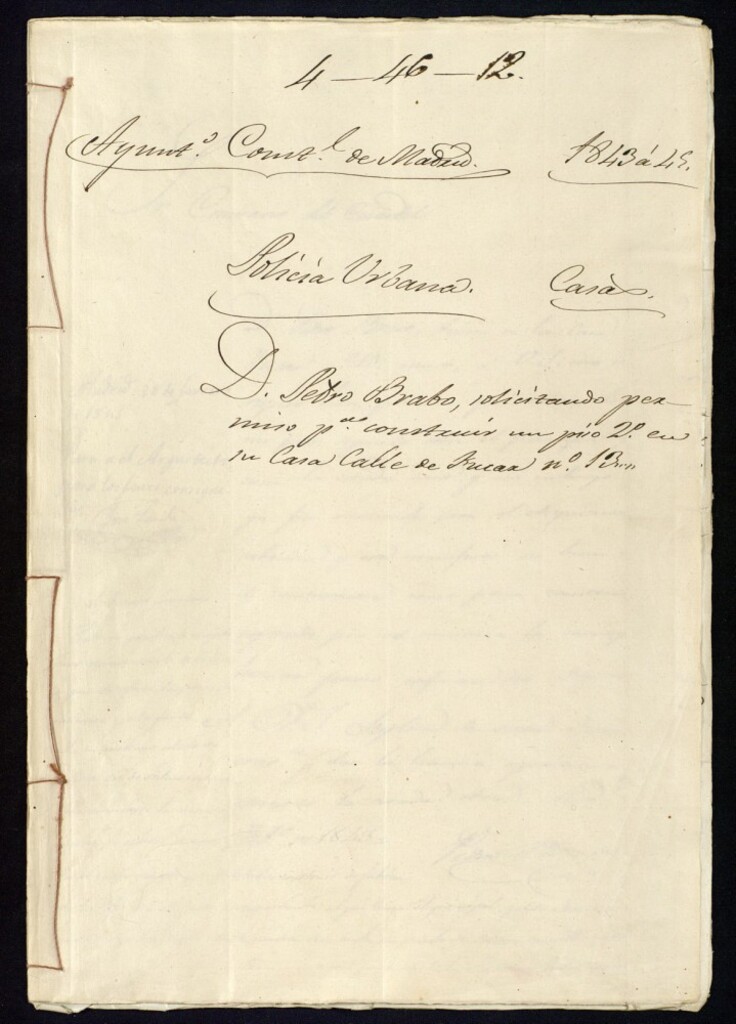 4 - 46 - 12.
Ayunt.º Const.l de Madrid. 1843 á 45.
Policia Urbana. Casas.
D. Pedro Brabo, solicitando per-
miso p.ª construir un piso 2.º en
su Casa Calle de Fucar n.º 13